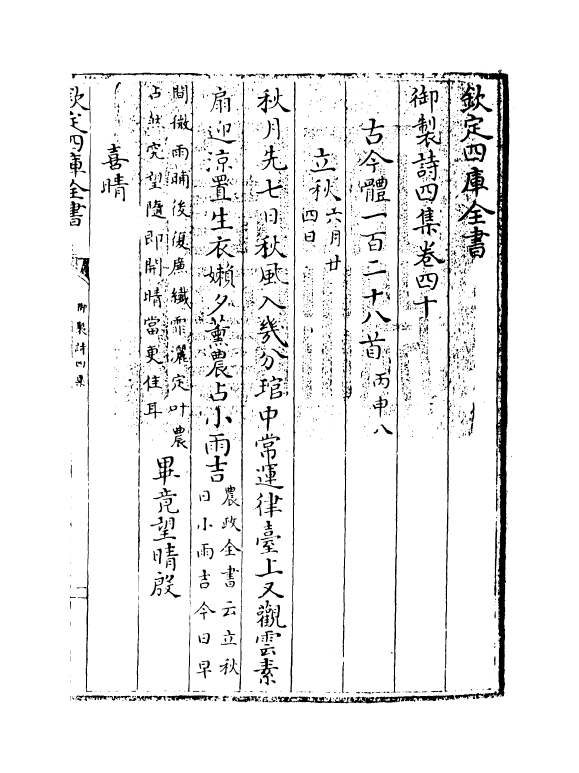 欽定四庫全書
御製詩四集卷四十
古今體一百二十八首丙申八
立秋六月廿四日
秋月先七日秋風入幾分琯中常運律臺上又觀雲素
扇迎涼置生衣嬾夕薰農占小雨吉農政全書云立秋日小雨吉今日早
間微雨晡後復廉纖霏灑定叶農占然究望隨即開晴當更佳耳畢竟望晴殷
喜晴
欽定四庫全書
御製詩四集